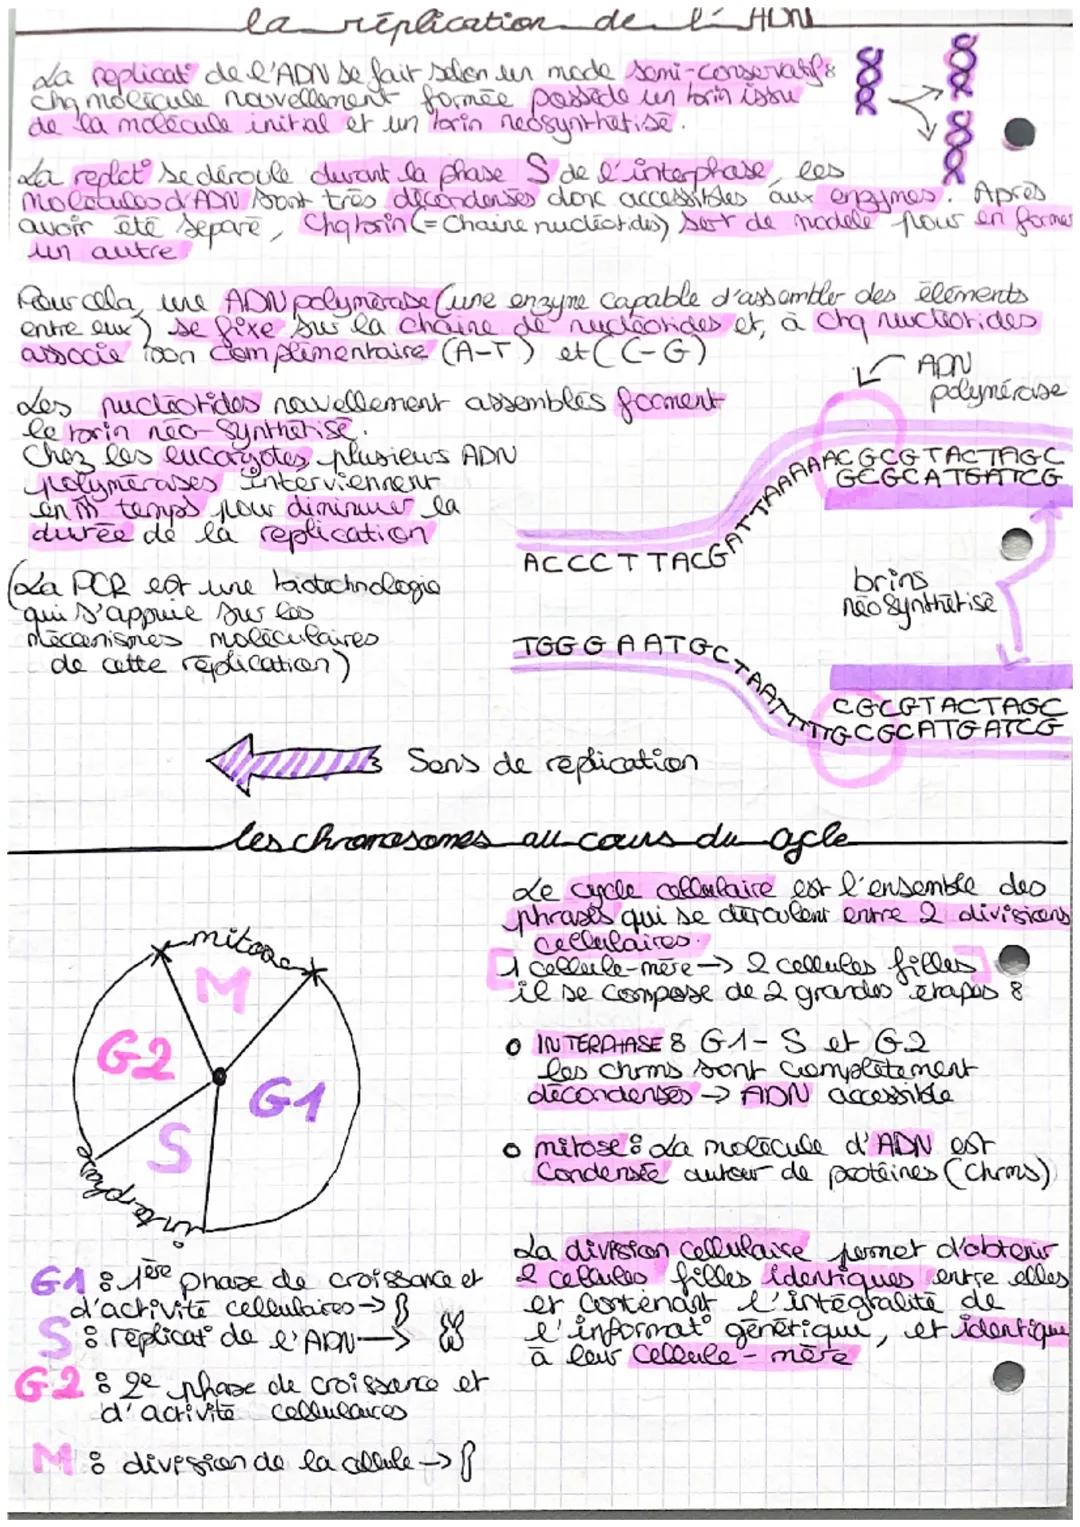 la réplication de l'ADN
La replicat° de l'ADN se fait selon un mode semi-conservatif :
chq molécule nouvellement formée possède un brin issu
de la molécule initial et un brin néosynthétisé.
La replct° se déroule durant la phase S de l'interphase, les
molécules d'ADN sont très décondensés donc accessibles aux enzymes. Après
avoir été séparé, chq brin (= Chaine nucléotides) sert de modèle pour en former
un autre
Pour cela, une ADN polymérase (une enzyme capable d'assembler des éléments
entre eux) se fixe sur la chaine de nucléotides et, à chq nucléotides
associe son complémentaire (A-T) et (C-G)
ADN
polymérase
Les nucléotides nouvellement assemblés forment
le brin néo-synthétisé.
Chez les eucaryotes, plusieurs ADN
polymérases interviennent
en m̂ temps pour diminuer la
durée de la réplication
(La PCR est une biotechnologie
qui s'appuie sur les
mécanismes moléculaires
de cette réplication)
ACCCTTACGATTAAAAACGCGTACTAGC
GCGCATGATCG
brins
néosynthétisé
TGGGAATGCTAATTTTTGCGCATGATCG
CGCGTACTAGC
Sens de réplication
les chromosomes au cours du cycle
Le cycle cellulaire est l'ensemble des
phrases qui se déroulent entre 2 divisions
cellulaires.
[1 cellule-mère → 2 cellules filles]
il se compose de 2 grandes étapes :
o INTERPHASE : G1 - S et G2
les chrms sont complètement
décondensés → ADN accessible
o mitose : La molécule d'ADN est
Condensée autour de protéines (Chrms)
La division cellulaire permet d'obtenir
2 cellules filles identiques entre elles
et contenant l'intégralité de
l'informat° génétique, et identique
à leur cellule-mère
mitose
M
G2
G1
S
interphase
G1 : 1ère phase de croissance et
d'activité cellulaires →
S : réplicat° de l'ADN →
G2 : 2e phase de croissance et
d'activité cellulaires
M : division de la cellule →